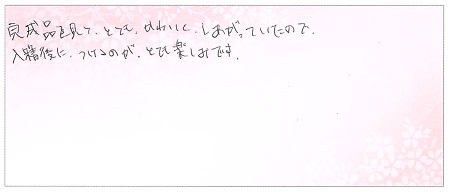 完成品を見て、とても、かわいく、しあがっていたので、
入籍後に、つけるのが、とても楽しみです。